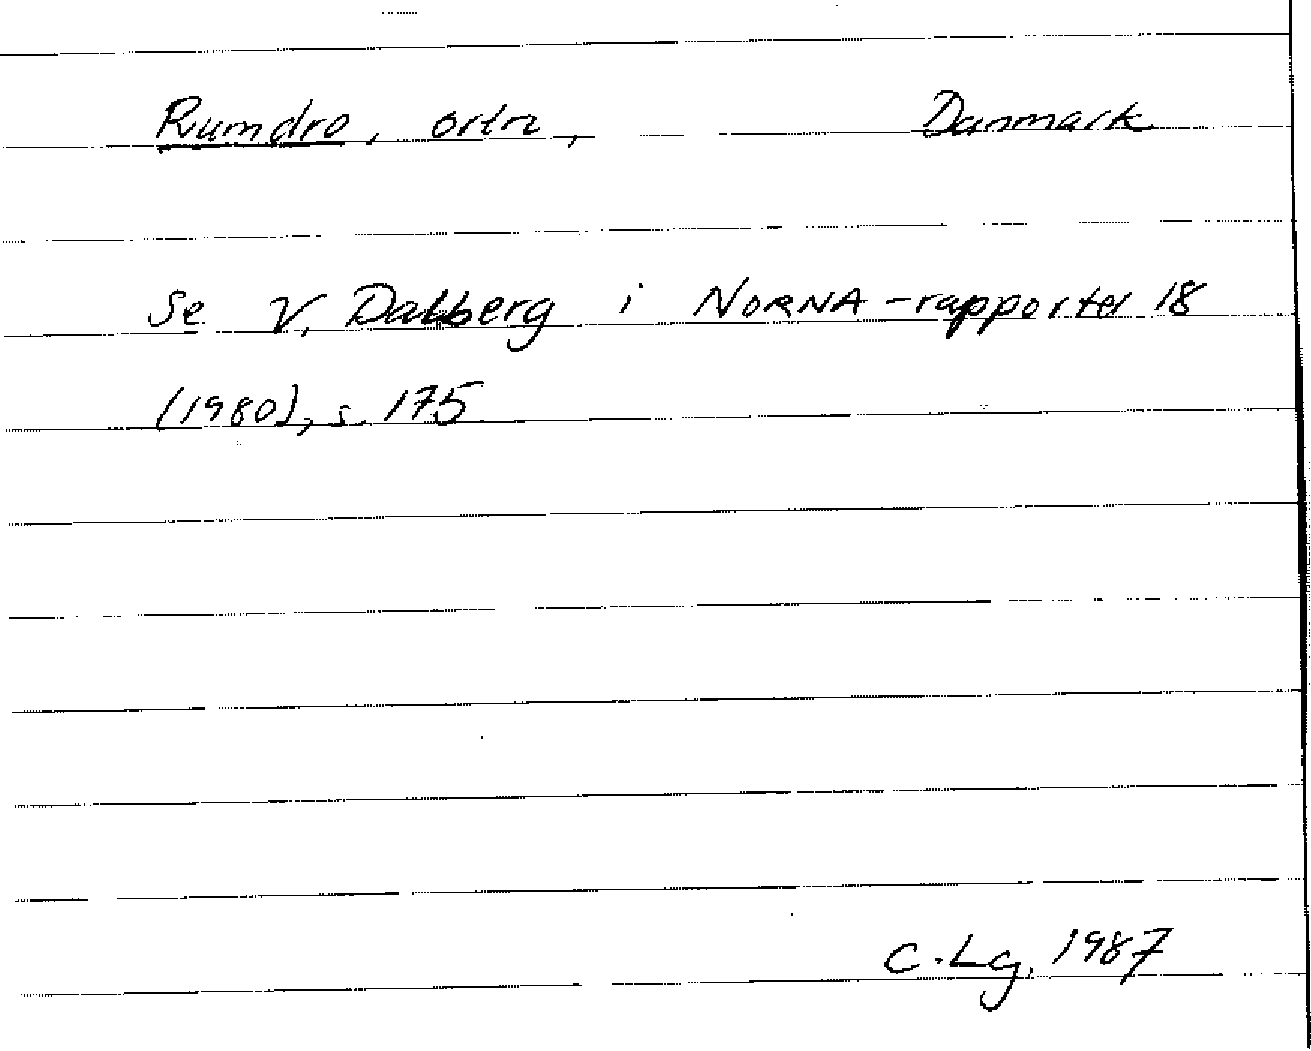 Rumdro, ortn, Danmark
Se V. Dalberg i NORNA-rapporter 18
(1980), s. 175
C. Lg. 1987